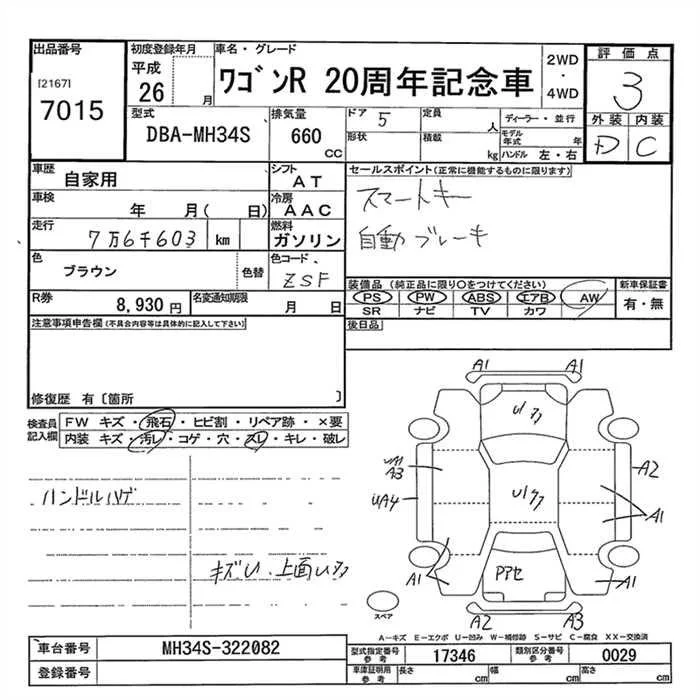 出品番号 初度登録年月 車名・グレード 評価点
[2167] 平成 ワゴンR 20周年記念車 2WD・4WD 3
7015 26 月
型式 排気量 ドア 5 定員 人 ディーラー・並行 外装 内装
DBA-MH34S 660 CC 形状 積載 kg モデル年式 年 D C
ハンドル 左・右
車歴 自家用 シフト AT セールスポイント(正常に機能するものに限ります)
車検 年 月( 日) 冷房 AAC スマートキー
走行 7万6千603 km 燃料 ガソリン 自動ブレーキ
色 ブラウン 色替 色コード ZSF
装備品 (純正品に限り○をつけてください) 新車保証書
R券 8,930円 名変通知期限 月 日 PS PW ABS エアB AW 有・無
SR ナビ TV カワ
注意事項申告欄(不具合内容等は具体的に記入して下さい) 後日品
修復歴 有〔箇所 〕
検査員記入欄 FW キズ・飛石・ヒビ割・リペア跡・×要
内装 キズ・汚レ・コゲ・穴・スレ・キレ・破レ
A1 A1
UA1
A3 A2
UA4 A1
ハンドルハゲ
A1 A1
A2 A3
スペア
A-キズ E-エクボ U-凹み W-補修跡 S-サビ C-腐食 XX-交換済
車台番号 MH34S-322082 型式指定番号 参考 17346 類別区分番号 参考 0029
登録番号 車庫証明用 参考 長さ cm 幅 cm 高さ cm